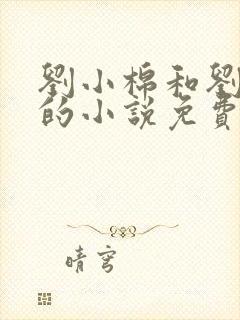 劉小棉和劉
的小說免費
晴穹